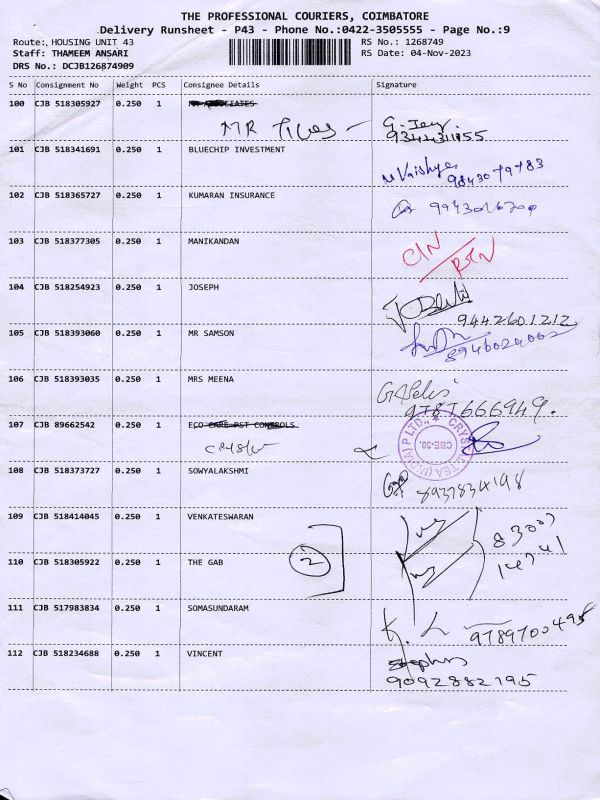 THE PROFESSIONAL COURIERS, COIMBATORE
Delivery Runsheet - P43 - Phone No.:0422-3505555 - Page No.:9
Route: HOUSING UNIT 43 RS No.: 1268749
Staff: THAMEEM ANSARI RS Date: 04-Nov-2023
DRS No.: DCJB126874909
S No Consignment No Weight PCS Consignee Details Signature
100 CJB 518305927 0.250 1
MR
101 CJB 518341691 0.250 1 BLUECHIP INVESTMENT
9843079783
102 CJB 518365727 0.250 1 KUMARAN INSURANCE
103 CJB 518377305 0.250 1 MANIKANDAN
C/N
RTN
104 CJB 518254923 0.250 1 JOSEPH
9442601212
105 CJB 518393060 0.250 1 MR SAMSON
106 CJB 518393035 0.250 1 MRS MEENA
9787666949.
107 CJB 89662542 0.250 1 ECO CARE PST CONTROLS
CBE-30.
108 CJB 518373727 0.250 1 SOWYALAKSHMI
8937834198
109 CJB 518414045 0.250 1 VENKATESWARAN
2
110 CJB 518305922 0.250 1 THE GAB
14741
111 CJB 517983834 0.250 1 SOMASUNDARAM
9789700495
112 CJB 518234688 0.250 1 VINCENT
9092882195